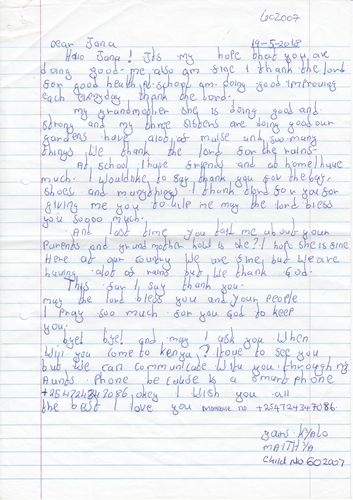 G02007
Dear Jana 19-5-2018
Hallo Jana! Its my hope that you are
doing good. me also am fine I thank the lord
for good health. At school am doing good improving
each everyday thank the lord.
my grandmother she is doing good and
strong and my sisters are doing good our
gardens have alot of maise and so many
things we thank the lord for the rains.
At school I have friends and at home I have
much. I would like to say thank you for the
shoes and many things I thank lord for you for
giving me you to me may the lord bless
you soooo much.
And last time you told me about your
parents and grand mother how is she? I hope she is fine
Here at our country we are fine but we are
having alot of rains but we thank God.
This far I say thank you.
may the lord bless you and your people
I pray soo much for you God to keep
you.
bye! bye! and may I ask you when
will you come to kenya? I love to see you
but we can communicate with you through my
Aunts phone because is a smart phone
okey I wish you all
the best I love you
KYALO
MAITHYA
Child No G02007